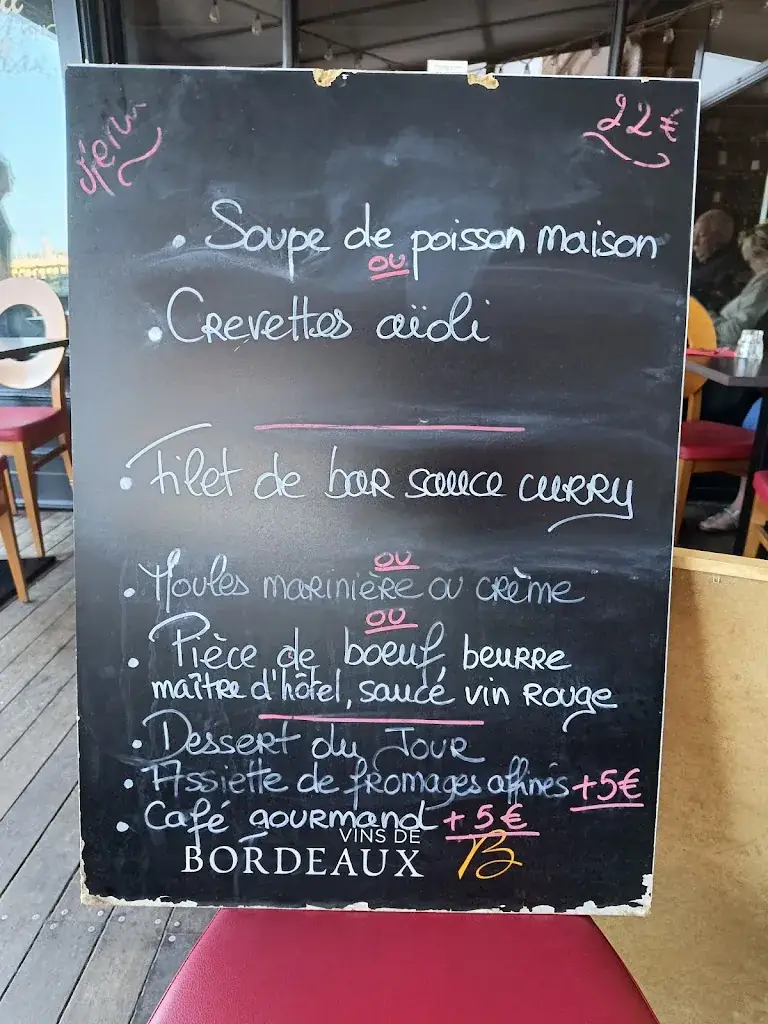 Menu
22€
• Soupe de poisson maison
ou
• Crevettes aïoli
• Filet de bar sauce curry
ou
• Moules marinière ou crème
ou
• Pièce de boeuf, beurre
maître d'hôtel, sauce vin rouge
• Dessert du jour
• Assiette de fromages affinés +5€
• Café gourmand +5€
VINS DE
BORDEAUX B